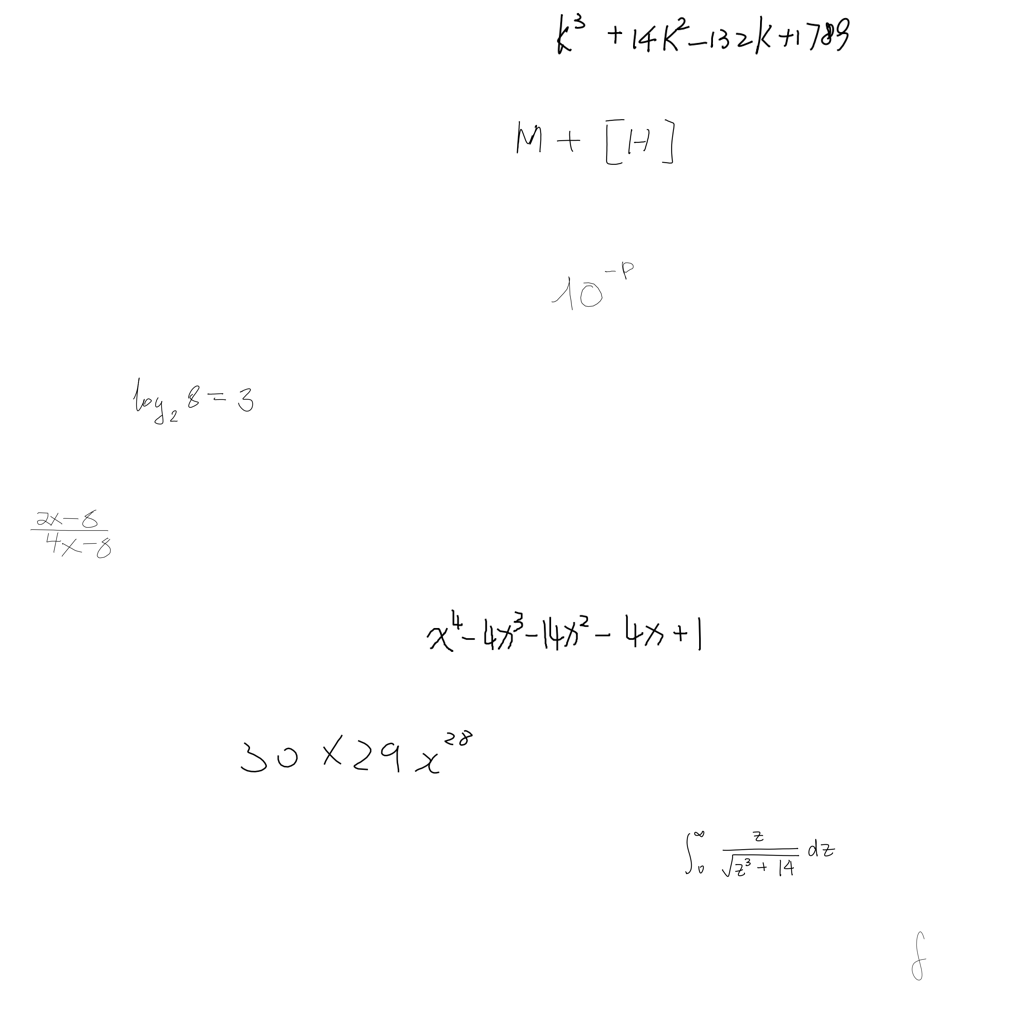 k³ + 14k² - 132k + 1789
M + [H]
10^{-p}
log₂ 8 = 3
\frac{2x-8}{4x-8}
x⁴ - 4x³ - 14x² - 4x + 1
30 × 29 x^{28}
\int_0^∞ \frac{z}{\sqrt{z³ + 14}} dz
f